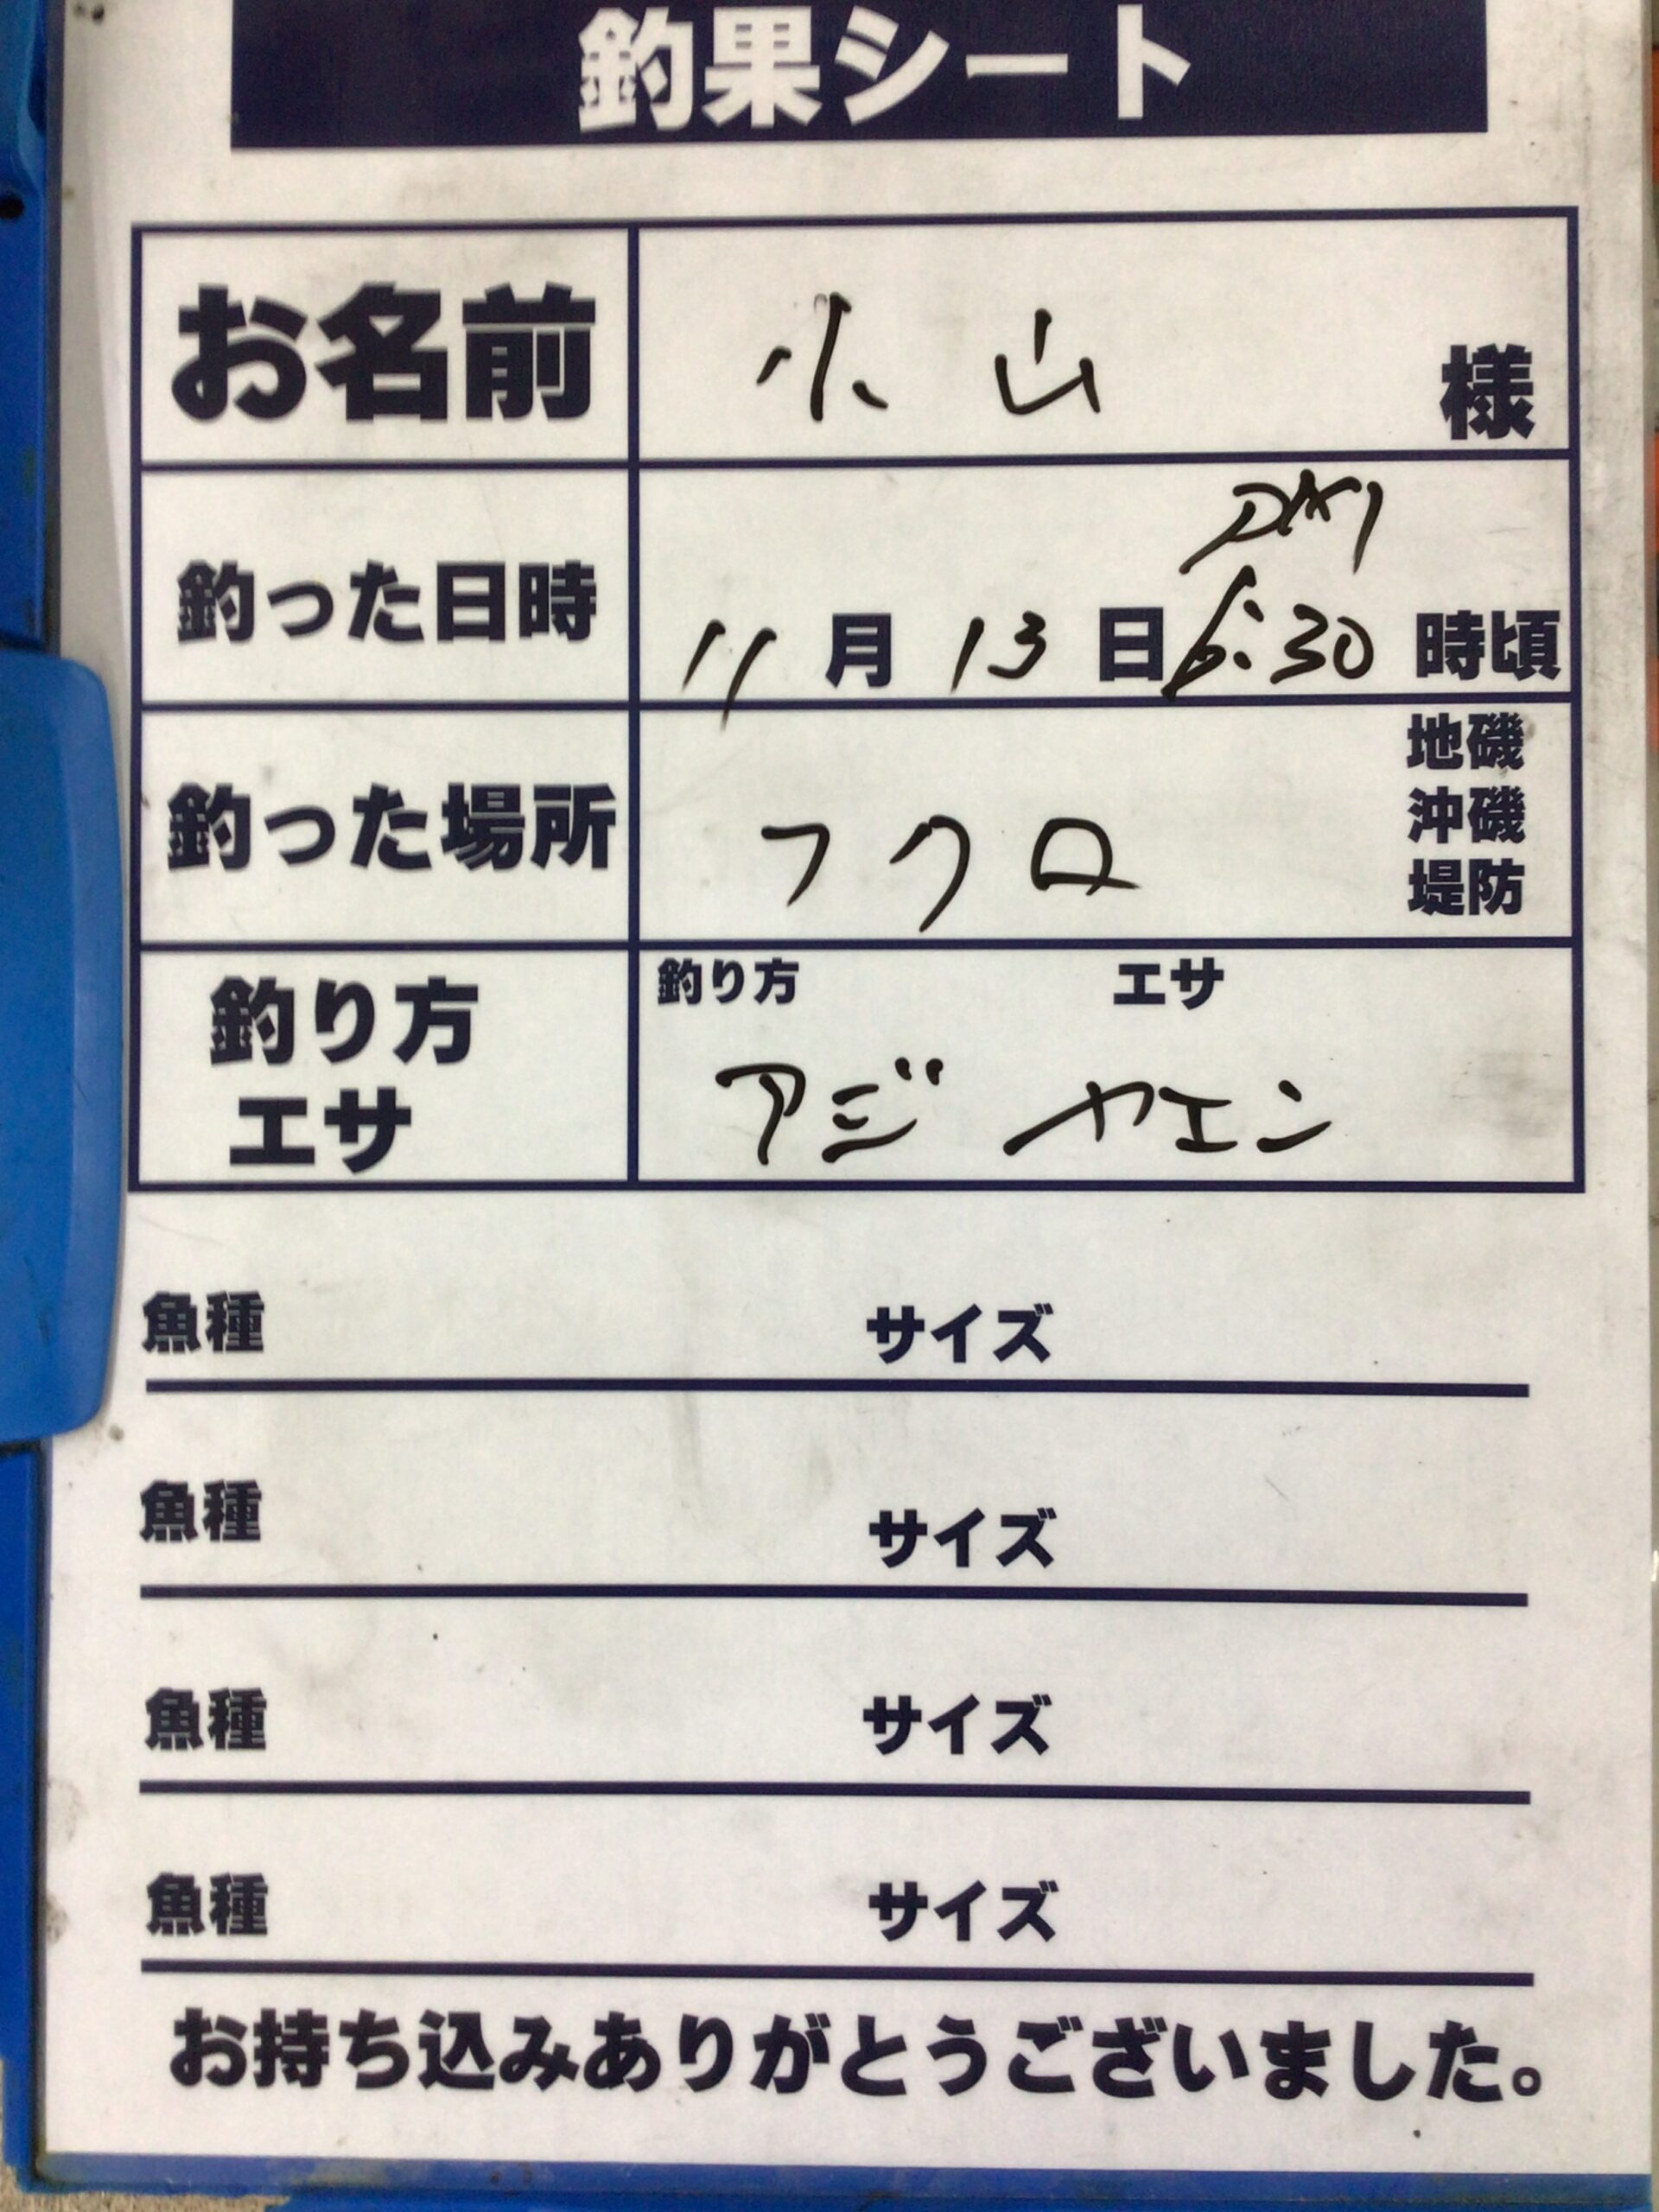 釣果シート
お名前 小山 様
PM
釣った日時 11月13日6:30時頃
地磯
釣った場所 フクロ 沖磯
堤防
釣り方 釣り方 エサ
エサ アジ ヤエン
魚種 サイズ
魚種 サイズ
魚種 サイズ
魚種 サイズ
お持ち込みありがとうございました。